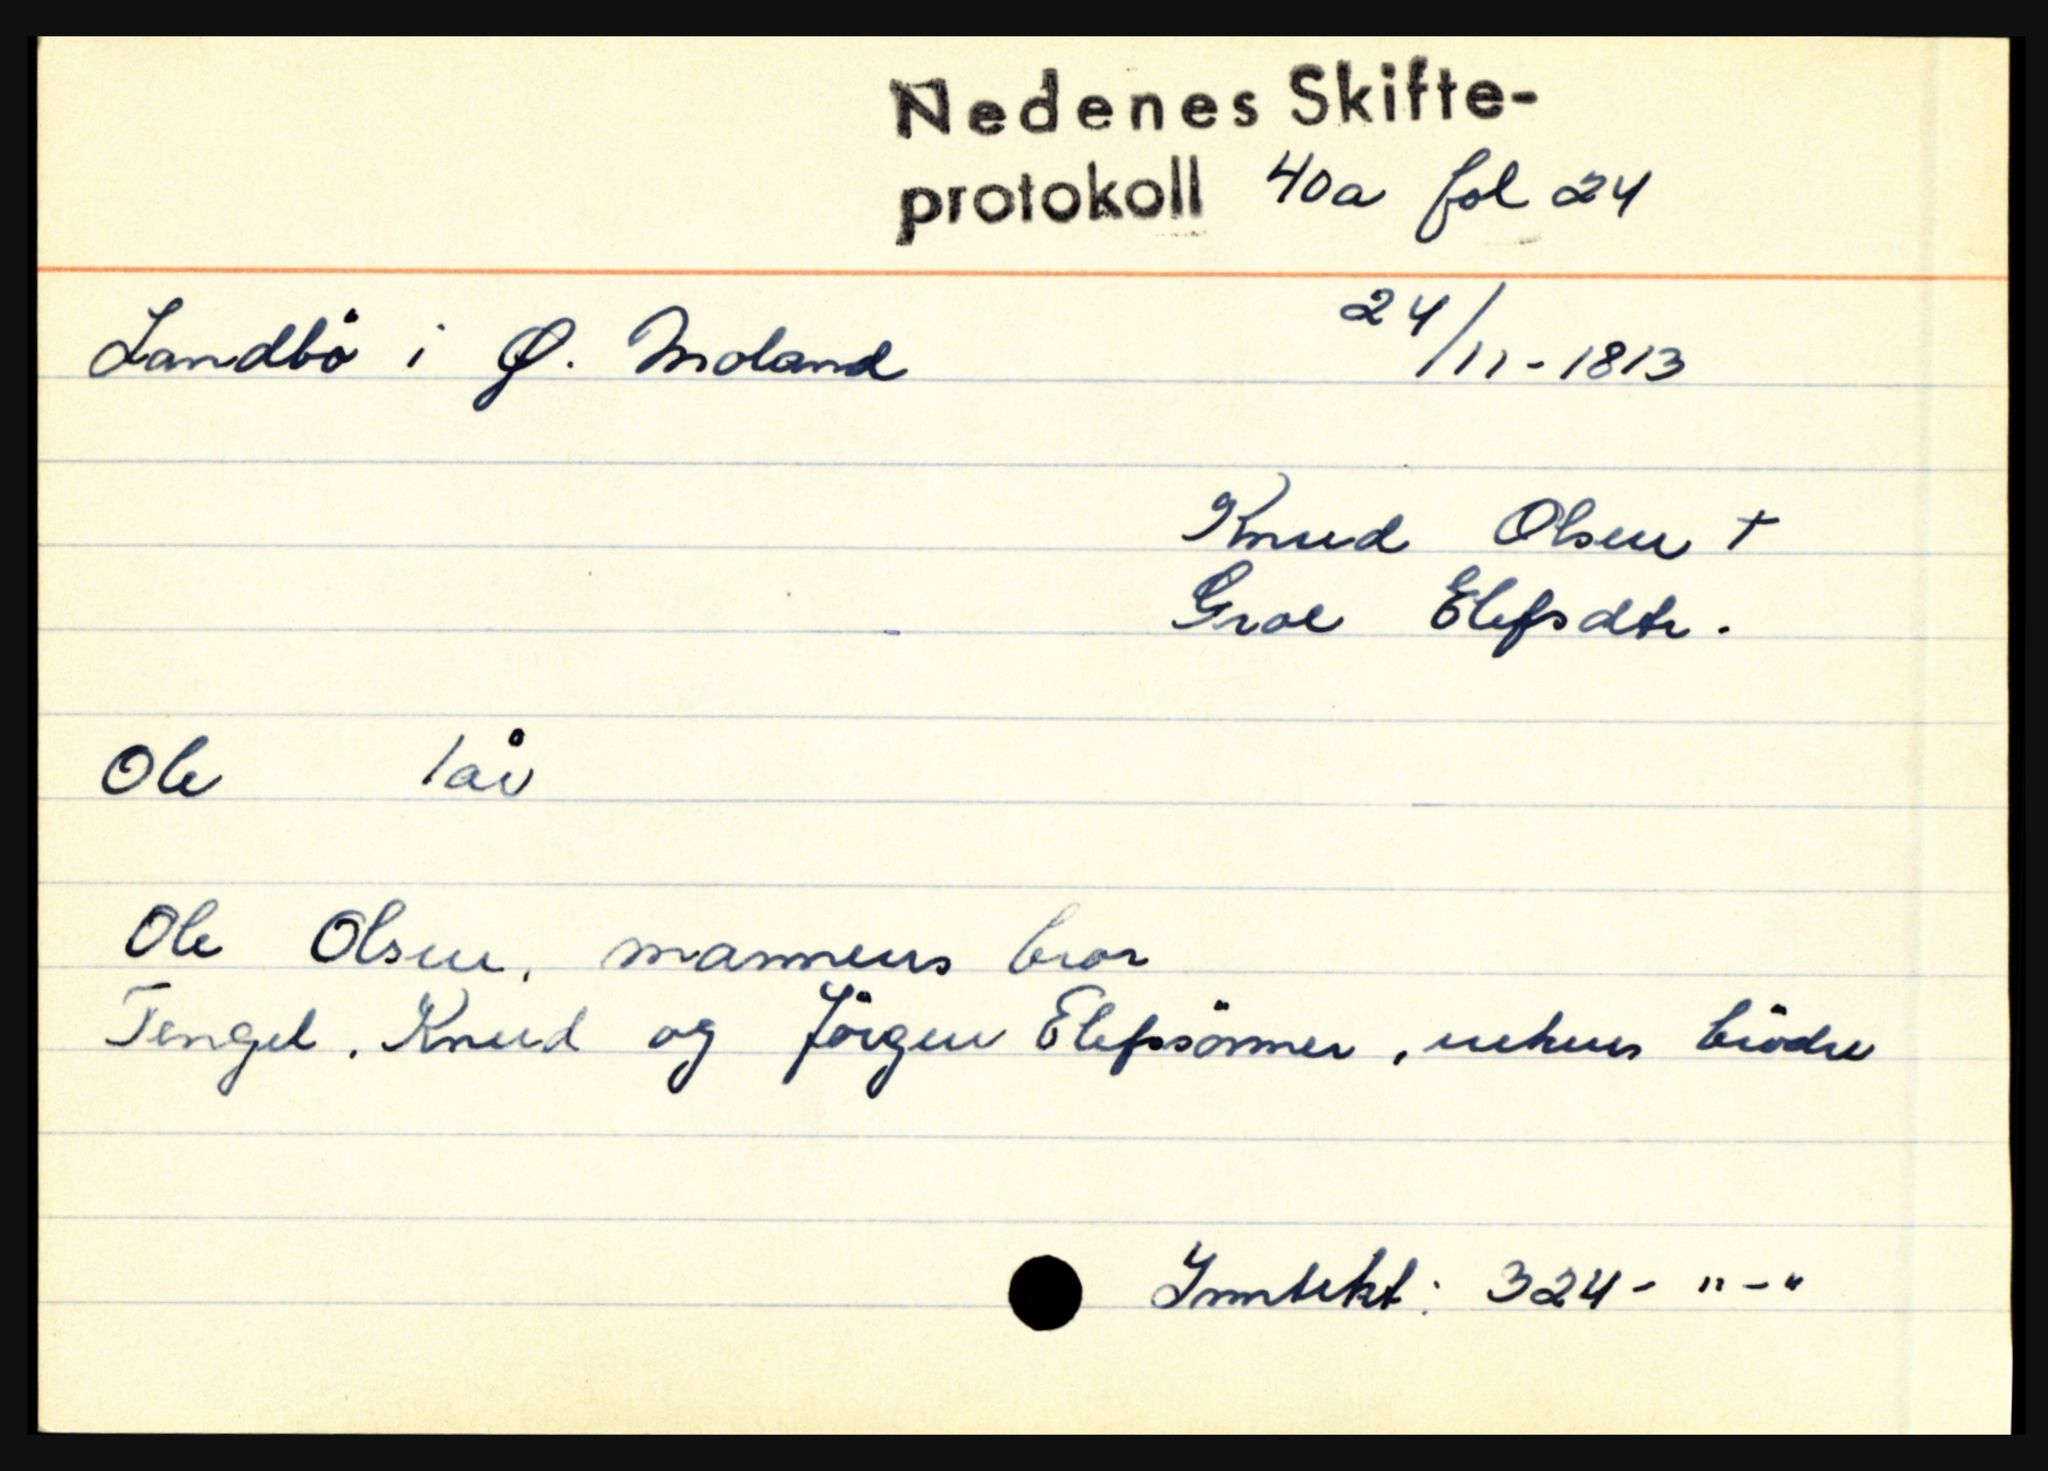 Nedenes Skifte-
protokoll 40a fol 24
Landbö i Ø. Moland 24/11-1813
Knud Olsen +
Groe Elefsdtr.
Ole 1 år
Ole Olsen, mannens bror
Tengel, Knud og Jörgen Elefssönner, enkens brödre
Inntekt: 324- " - "